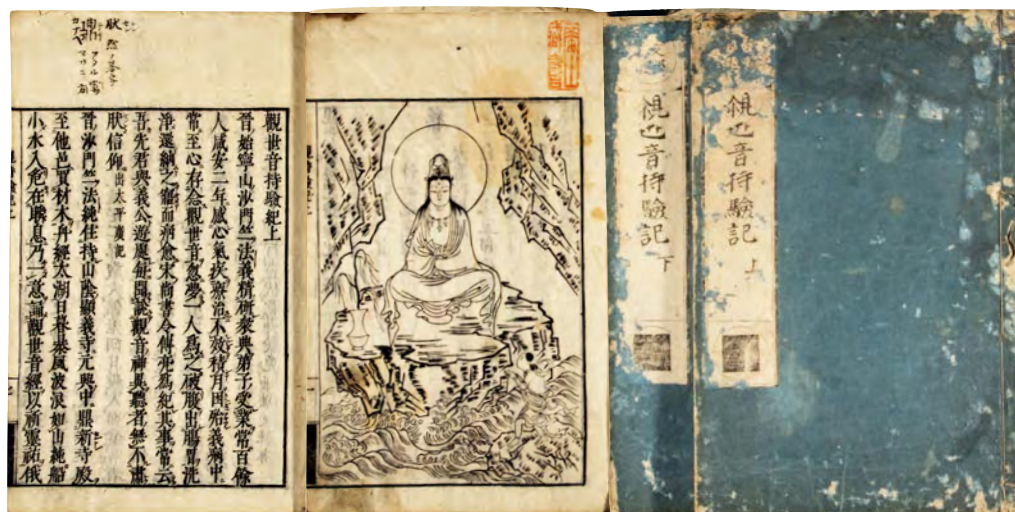 觀世音持驗紀上
晉始寧山沙門竺法義精研衆典弟子受業常百餘
人咸安二年感心氣疾療治不效積月困殆義病中
常至心存念觀世音忽夢一人爲之破腹出腸胃洗
淨還納之寤而病愈宋尚書令傅亮爲紀其事常云
吾先君與義公遊處每聞說觀音神異聽者無不肅
狀信仰 出太平廣記
晉沙門竺法純住持山陰顯義寺元興中鼎新寺殿
至他邑買材木舟經太湖日暮暴風波浪如山純船
小水入危在瞬息乃一意誦觀世音經以祈靈祐俄
觀世音持驗記 下
觀世音持驗記 上